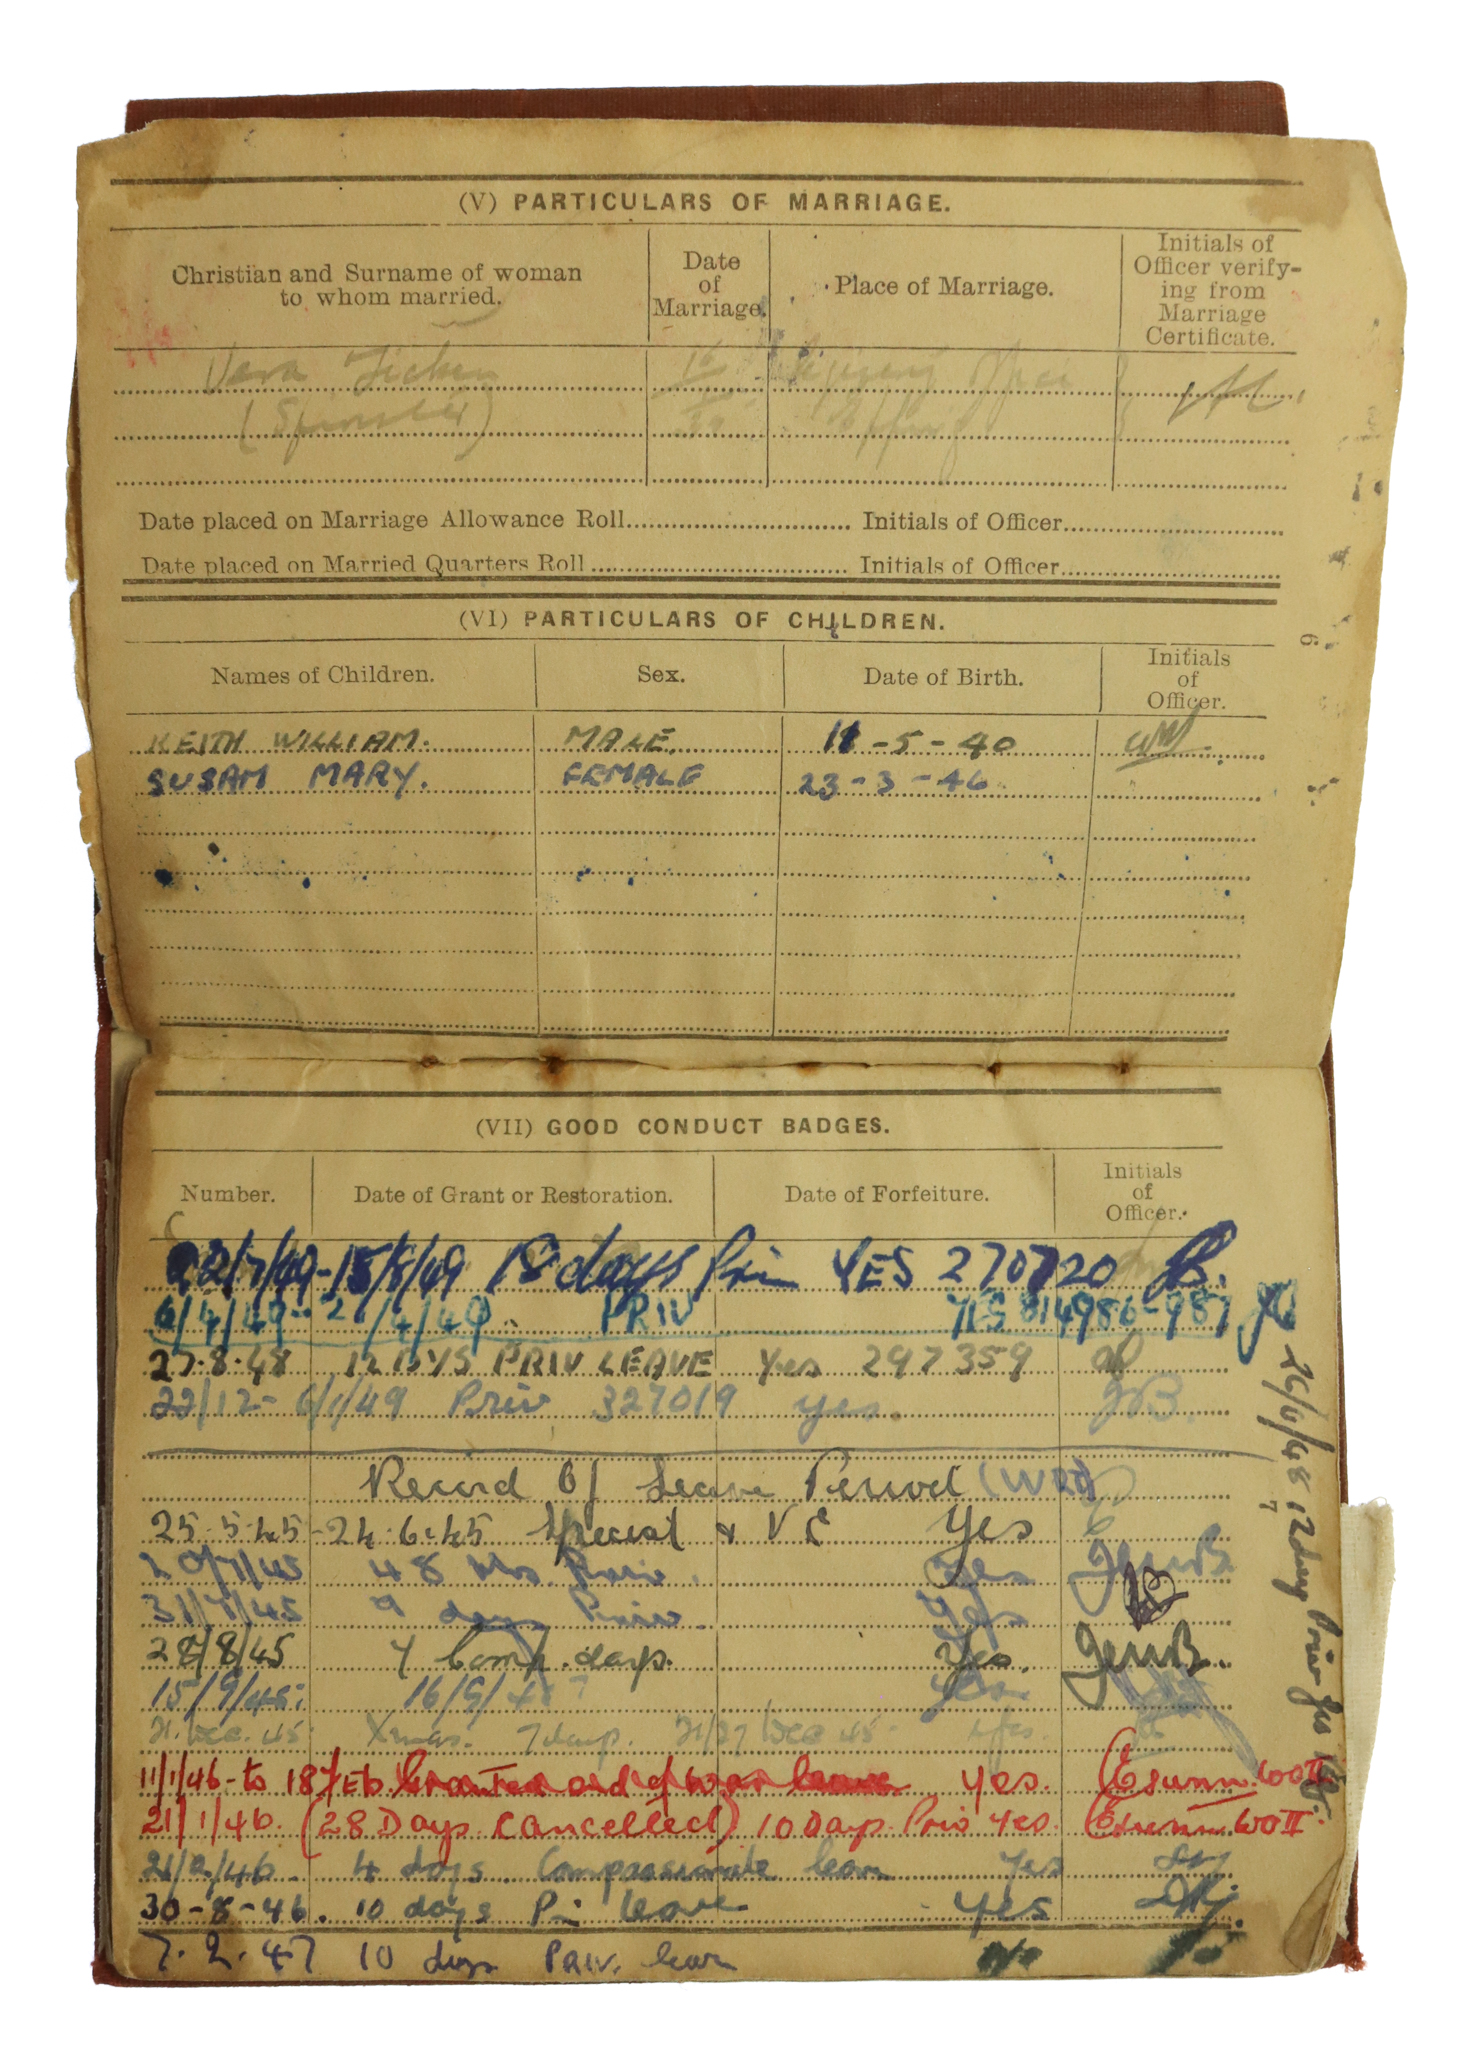 (V) PARTICULARS OF MARRIAGE.
Christian and Surname of woman to whom married.
Date of Marriage.
Place of Marriage.
Initials of Officer verify-ing from Marriage Certificate.
Vera
(Spinster)
Date placed on Marriage Allowance Roll Initials of Officer
Date placed on Married Quarters Roll Initials of Officer
6
(VI) PARTICULARS OF CHILDREN.
Names of Children. Sex. Date of Birth. Initials of Officer.
KEITH WILLIAM. MALE. 11-5-40
SUSAM MARY. FEMALE 23-3-46
(VII) GOOD CONDUCT BADGES.
Number. Date of Grant or Restoration. Date of Forfeiture. Initials of Officer.
22/7/49-15/8/49 18 days Priv YES 270720
6/4/49 - 2 /4/49. PRIV YES 814986-987
27.8.48 12 DYS PRIV LEAVE Yes 297359
22/12- 6/1/49 Priv 327019 yes.
Record Of Leave Period
25.5.45-24.6.45 Special & V E Yes
20/7/45 48 Hrs. Priv. Yes
31/7/45 9 days Priv. Yes
28/8/45 7 Comp. days. Yes.
15/9/45: 16/9/45 Yes
21. Dec. 45. Xmas. 7 days. 21/27 Dec 45. Yes
11/1/46 - to 18 Feb. Granted end of war leave yes. WOII
21/1/46. (28 Days Cancelled) 10 Days Priv Yes. WOII.
21/2/46. 4 days. Compassionate leave Yes
30-8-46. 10 days Pri leave Yes
7.2.47 10 days PRIV. leave
26/6/48 12 days Priv Yes